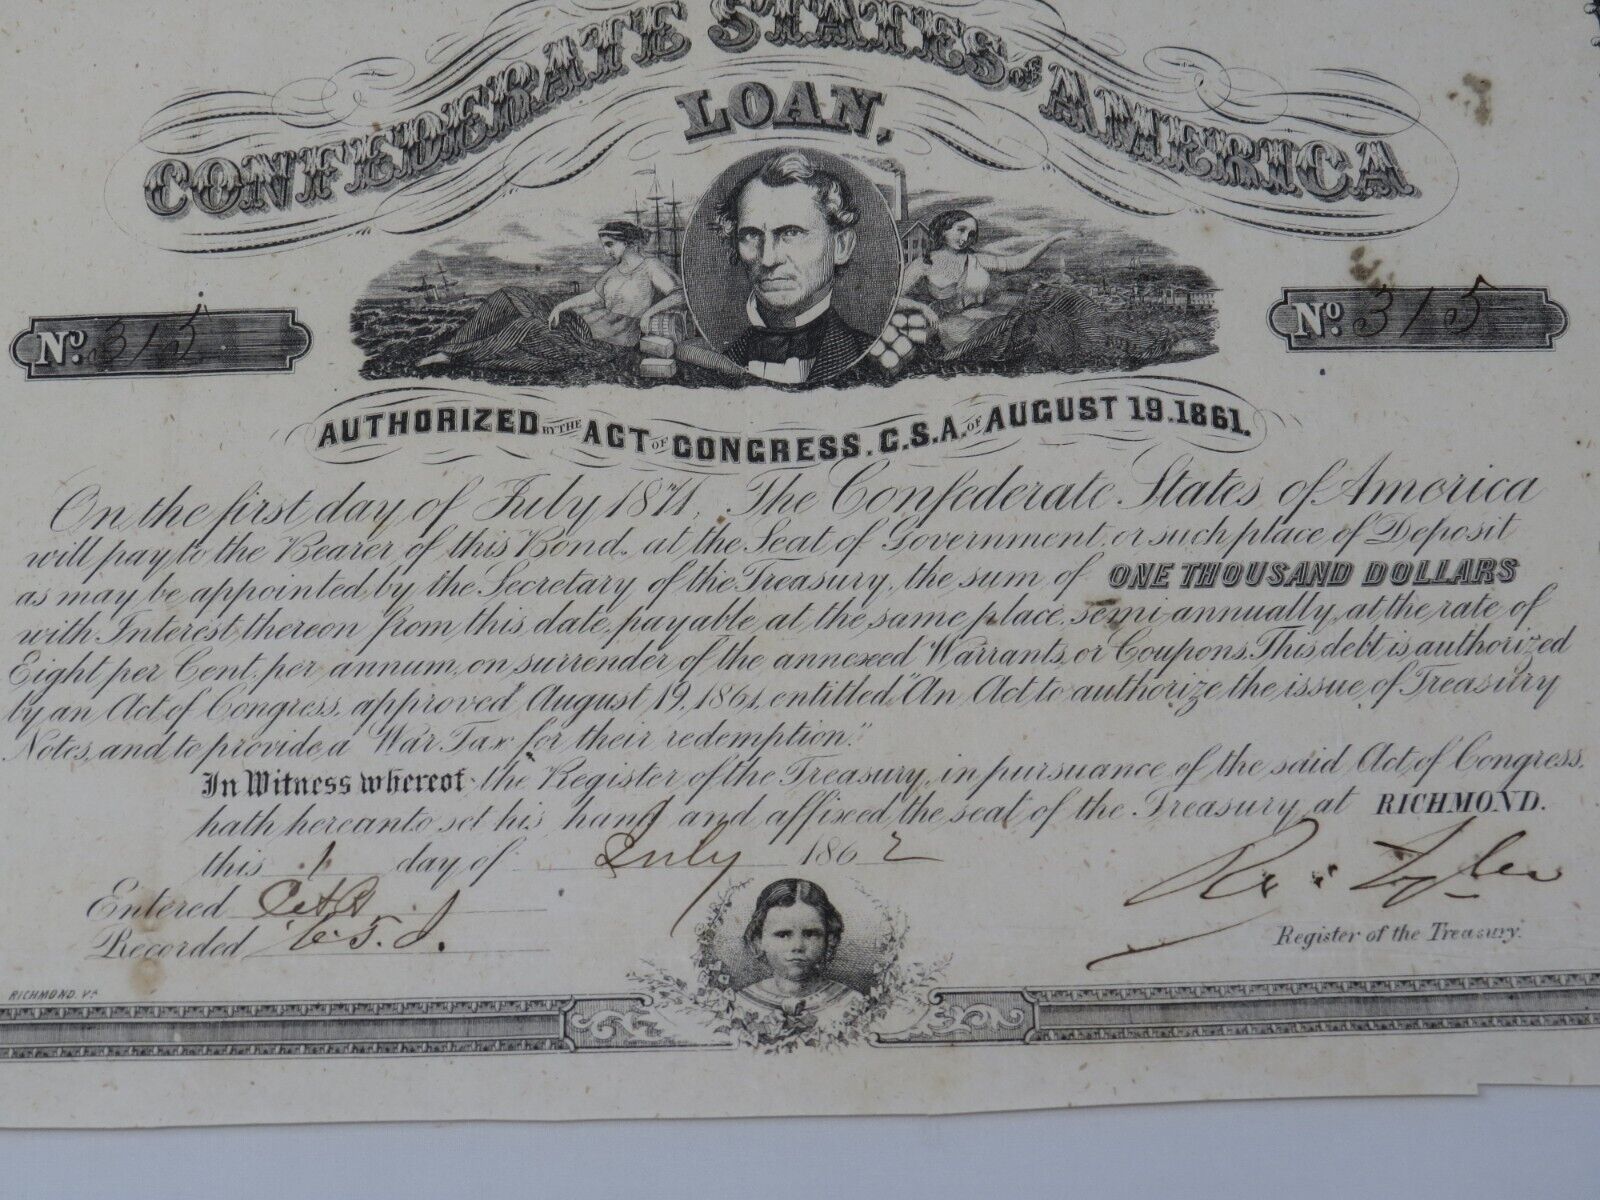 CONFEDERATE STATES OF AMERICA
LOAN,
No. 315
No. 315
AUTHORIZED BY THE ACT OF CONGRESS. C.S.A. OF AUGUST 19. 1861.
On the first day of July 1871, The Confederate States of America
will pay to the Bearer of this Bond, at the Seat of Government, or such place of Deposit
as may be appointed by the Secretary of the Treasury, the sum of ONE THOUSAND DOLLARS
with Interest thereon from this date, payable at the same place, semi-annually, at the rate of
Eight per Cent. per annum, on surrender of the annexed Warrants, or Coupons. This debt is authorized
by an Act of Congress, approved August 19, 1861, entitled, "An Act to authorize the issue of Treasury
Notes, and to provide a War Tax for their redemption."
In Witness whereof, the Register of the Treasury, in pursuance of the said Act of Congress,
hath hereunto set his hand and affixed the seal of the Treasury, at RICHMOND.
this 1 day of July 1862
Entered
Recorded
Ro: Tyler
Register of the Treasury.
RICHMOND, VA.